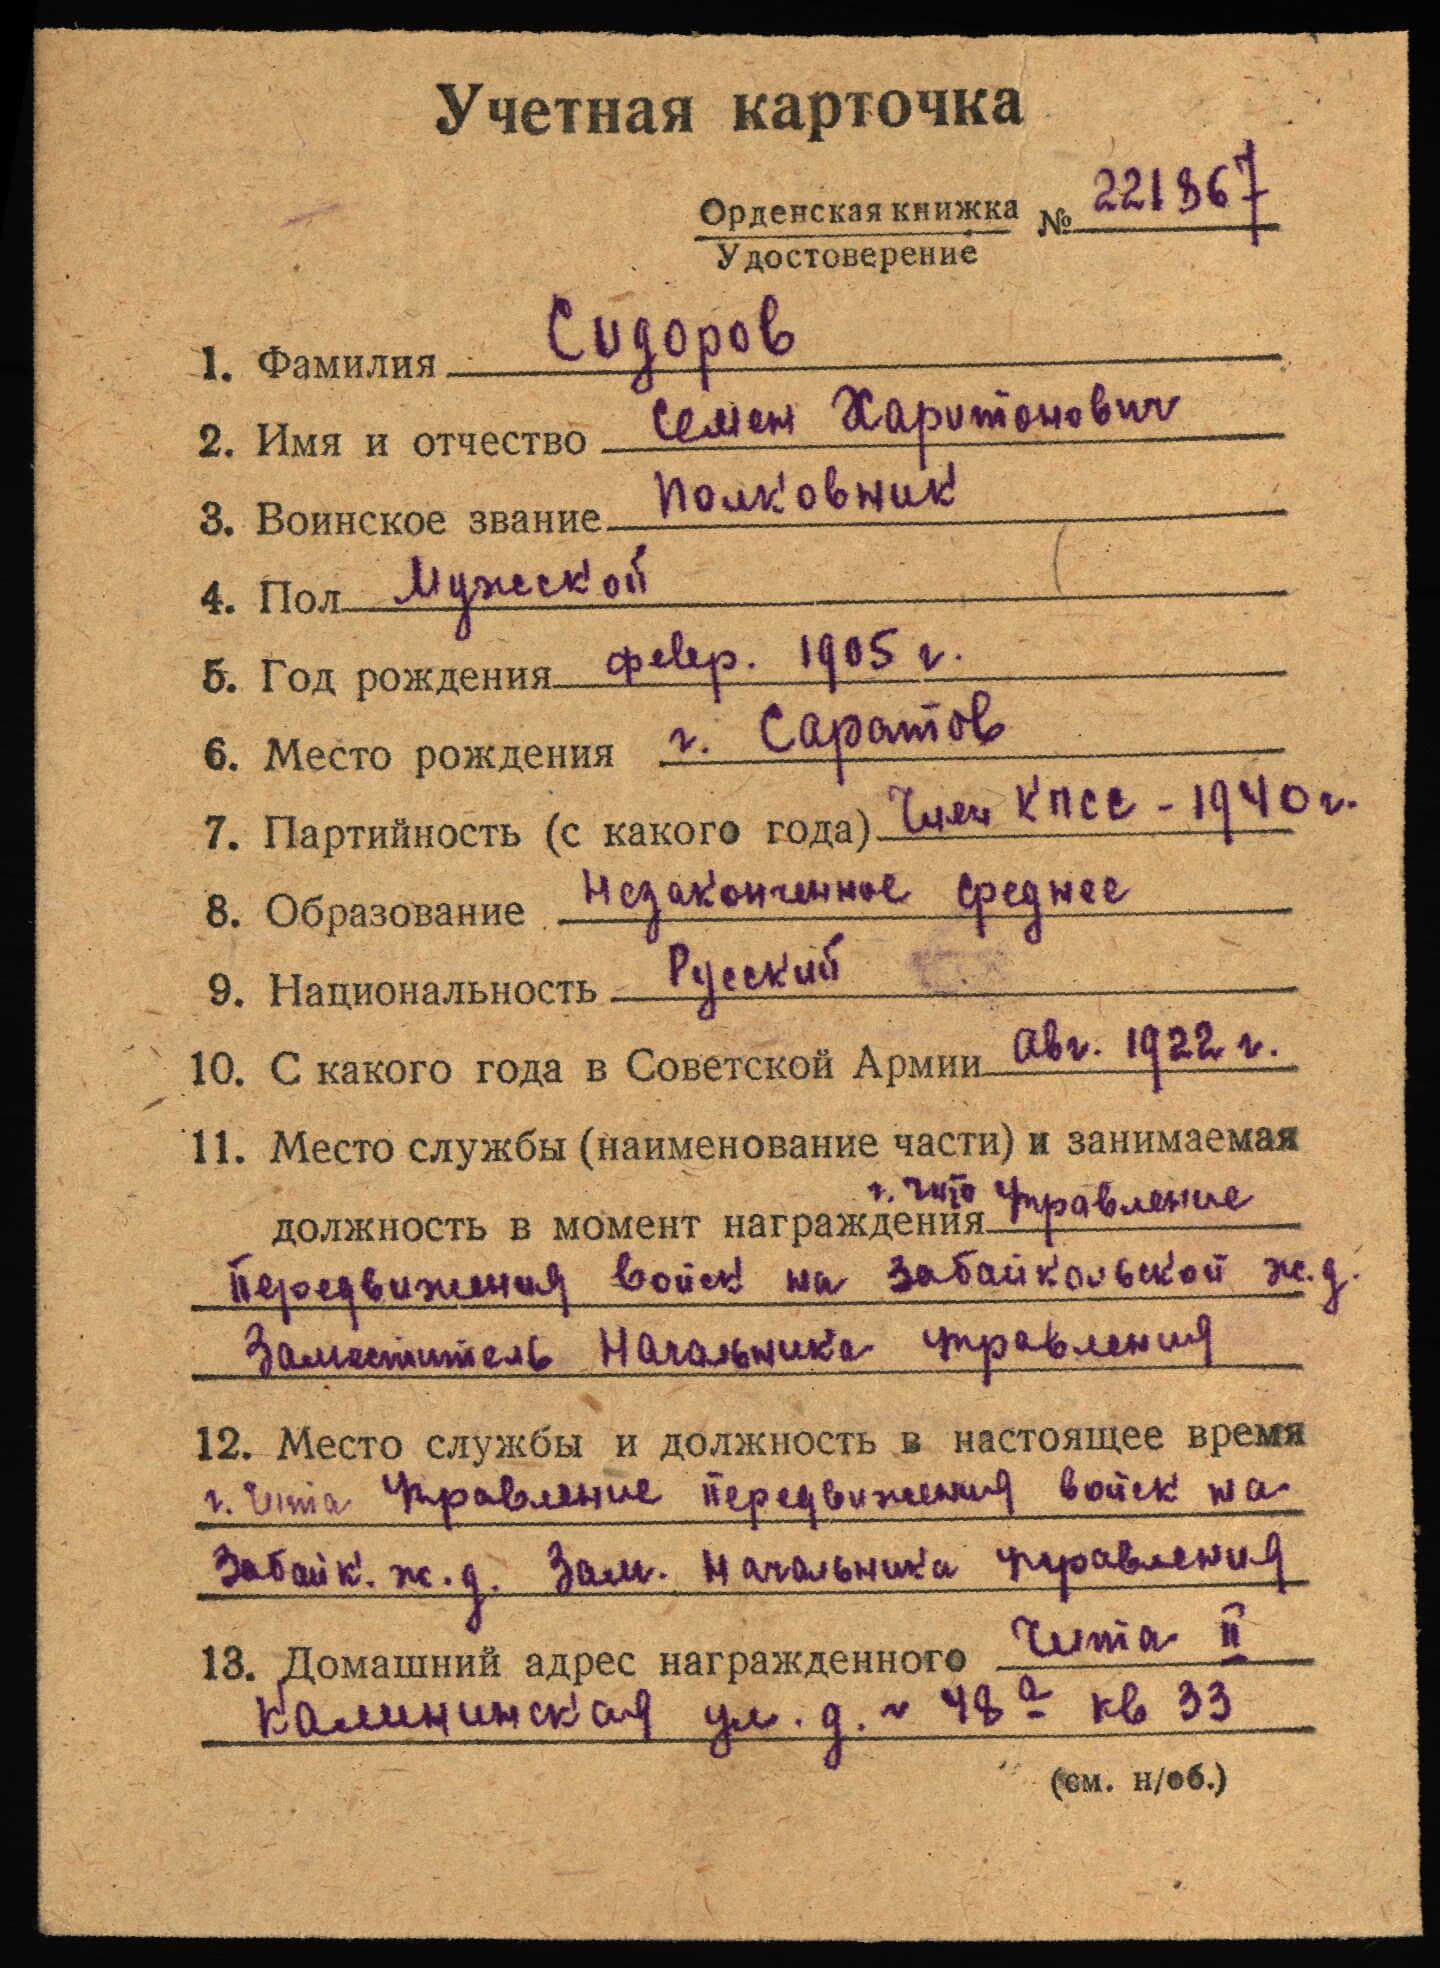 Учетная карточка
Орденская книжка № 221867
Удостоверение
1. Фамилия Сидоров
2. Имя и отчество Семен Харитонович
3. Воинское звание Полковник
4. Пол Мужской
5. Год рождения февр. 1905 г.
6. Место рождения г. Саратов
7. Партийность (с какого года) Член КПСС - 1940 г.
8. Образование Незаконченное среднее
9. Национальность Русский
10. С какого года в Советской Армии Авг. 1922 г.
11. Место службы (наименование части) и занимаемая
должность в момент награждения г. Чита Управление
Передвижения войск на Забайкольской ж.д.
Заместитель Начальника управления
12. Место службы и должность в настоящее время
г. Чита Управление передвижения войск на
Забайк. ж.д. Зам. Начальника управления
13. Домашний адрес награжденного Чита II
Калининская ул. д. 48а кв 33
(см. н/об.)